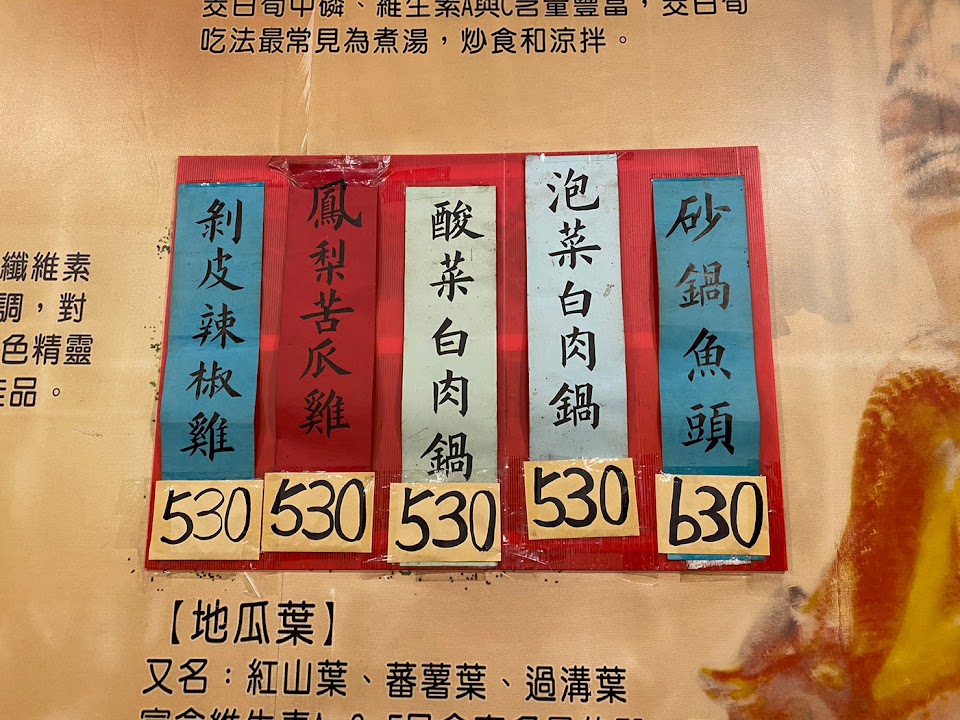 交白筍中磷、維生素A與C含量豐富，交白筍
吃法最常見為煮湯，炒食和涼拌。
纖維素
調，對
色精靈
佳品。
剝皮辣椒雞
530
鳳梨苦瓜雞
530
酸菜白肉鍋
530
泡菜白肉鍋
530
砂鍋魚頭
630
【地瓜葉】
又名：紅山葉、蕃薯葉、過溝葉